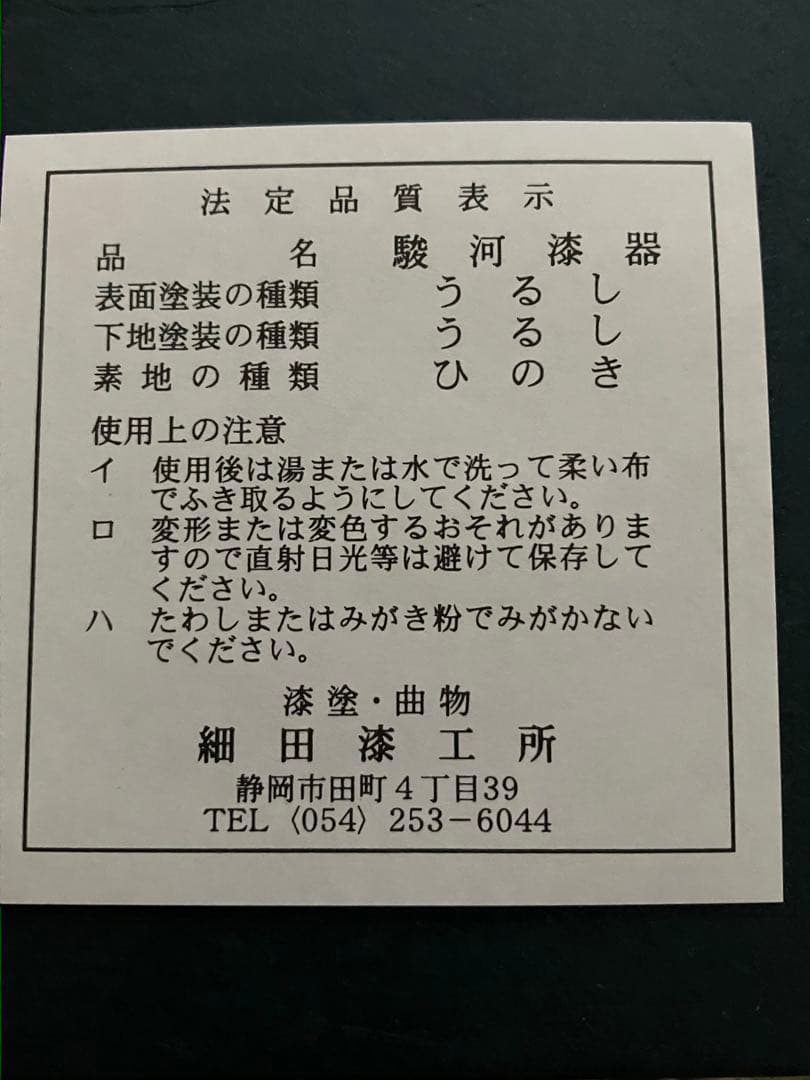 法定品質表示
品名 駿河漆器
表面塗装の種類 うるし
下地塗装の種類 うるし
素地の種類 ひのき
使用上の注意
イ 使用後は湯または水で洗って柔い布
でふき取るようにしてください。
ロ 変形または変色するおそれがありま
すので直射日光等は避けて保存して
ください。
ハ たわしまたはみがき粉でみがかない
でください。
漆塗・曲物
細田漆工所
静岡市田町4丁目39
TEL〈054〉253-6044